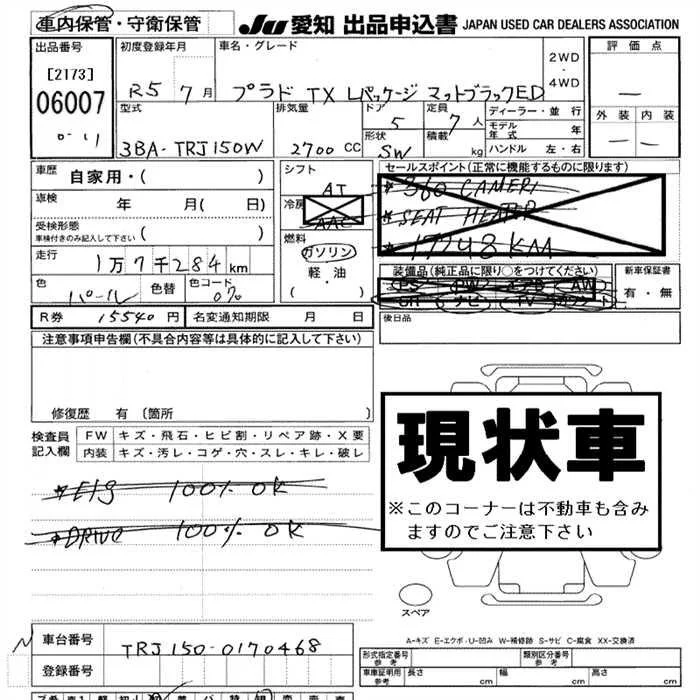 車内保管・守衛保管
JU 愛知 出品申込書 JAPAN USED CAR DEALERS ASSOCIATION
出品番号
[2173]
06007
初度登録年月
R5 7月
車名・グレード
プラド TX Lパッケージ マットブラックED
2WD
・
4WD
評価点
—
外装 内装
— —
型式
3BA-TRJ150W
排気量
2700 CC
ドア
5
形状
SW
定員
7人
積載
kg
ディーラー・並行
モデル年式 年
ハンドル 左・右
車歴 自家用・( )
車検 年 月( 日)
受検形態
車検付きのみ記入して下さい ( )
走行 1万7千284km
色 パール 色替 色コード 070
R券 15540円 名変通知期限 月 日
シフト
AT
冷房
AAC
燃料
ガソリン
・
軽・油
( )
セールスポイント(正常に機能するものに限ります)
★ 360 CAMERA
★ SEAT HEATER
★ 17248KM
装備品(純正品に限り○をつけてください)
PS PW エアB AW
ナビ TV
新車保証書
有・無
後日品
注意事項申告欄(不具合内容等は具体的に記入して下さい)
修復歴 有〔箇所
検査員記入欄
FW キズ・飛石・ヒビ割・リペア跡・X要
内装 キズ・汚レ・コゲ・穴・スレ・キレ・破レ
★E/g 100% OK
★DRIVE 100% OK
現状車
※このコーナーは不動車も含みますのでご注意下さい
スペア
A-キズ E-エクボ・U-凹み W-補修跡 S-サビ C-腐食 XX-交換済
車台番号 TRJ150-0170468
登録番号
形式指定番号 参考
類別区分番号 参考
車庫証明用 参考 長さ cm 幅 cm 高さ cm